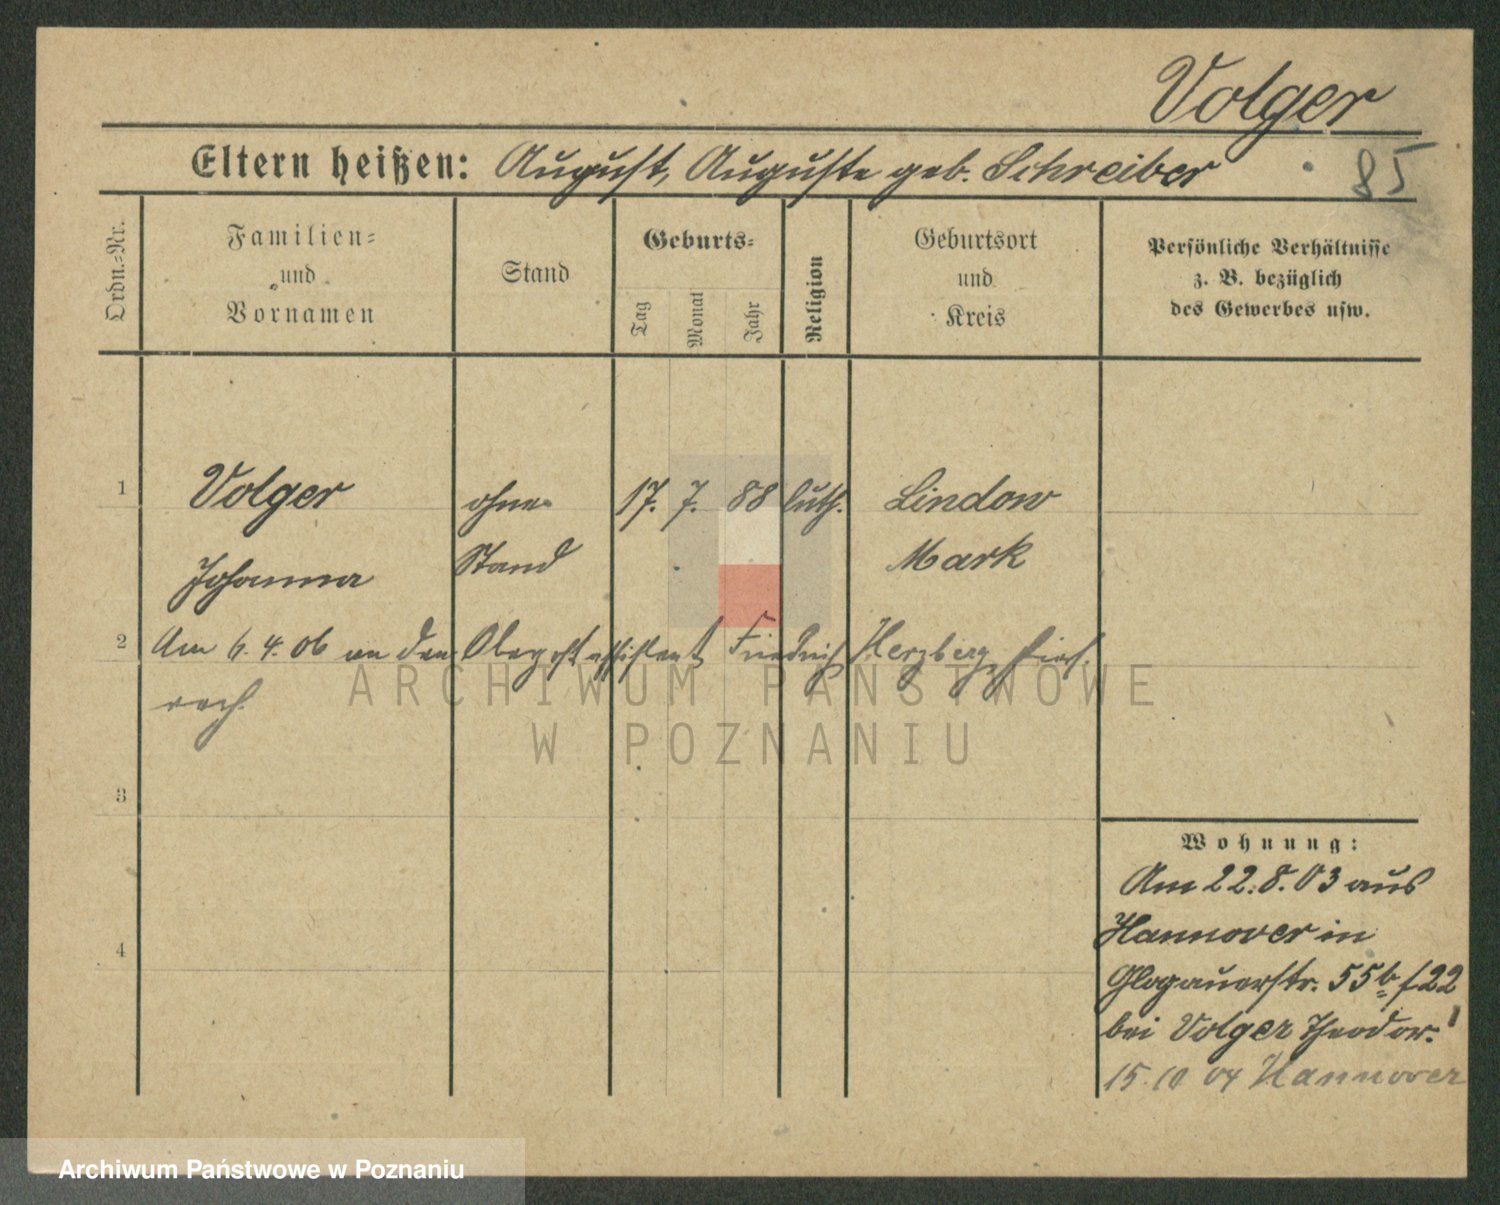 Volger
Eltern heißen: August, Auguste geb. Schreiber
85
Ordn.-Nr.
Familien-
und
Vornamen
Stand
Geburts-
Tag
Monat
Jahr
Religion
Geburtsort
und
Kreis
Persönliche Verhältnisse
z. B. bezüglich
des Gewerbes usw.
1 Volger ohne 17. 7. 88 luth. Lindow
Johanna Stand Mark
2 Am 6. 4. 06 an den Friedrich Herzberg
3
4
Wohnung:
Am 22.8.03 aus
Hannover in
Glogauerstr. 55b f22
bei Volger Theodor.
15.10 04 Hannover
ARCHIWUM PAŃSTWOWE
W POZNANIU
Archiwum Państwowe w Poznaniu